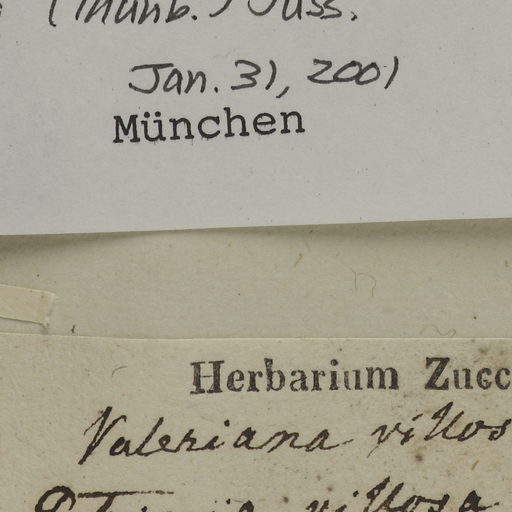 (Thunb.) Juss.
Jan. 31, 2001
München
Herbarium Zucc
Valeriana villos
villosa